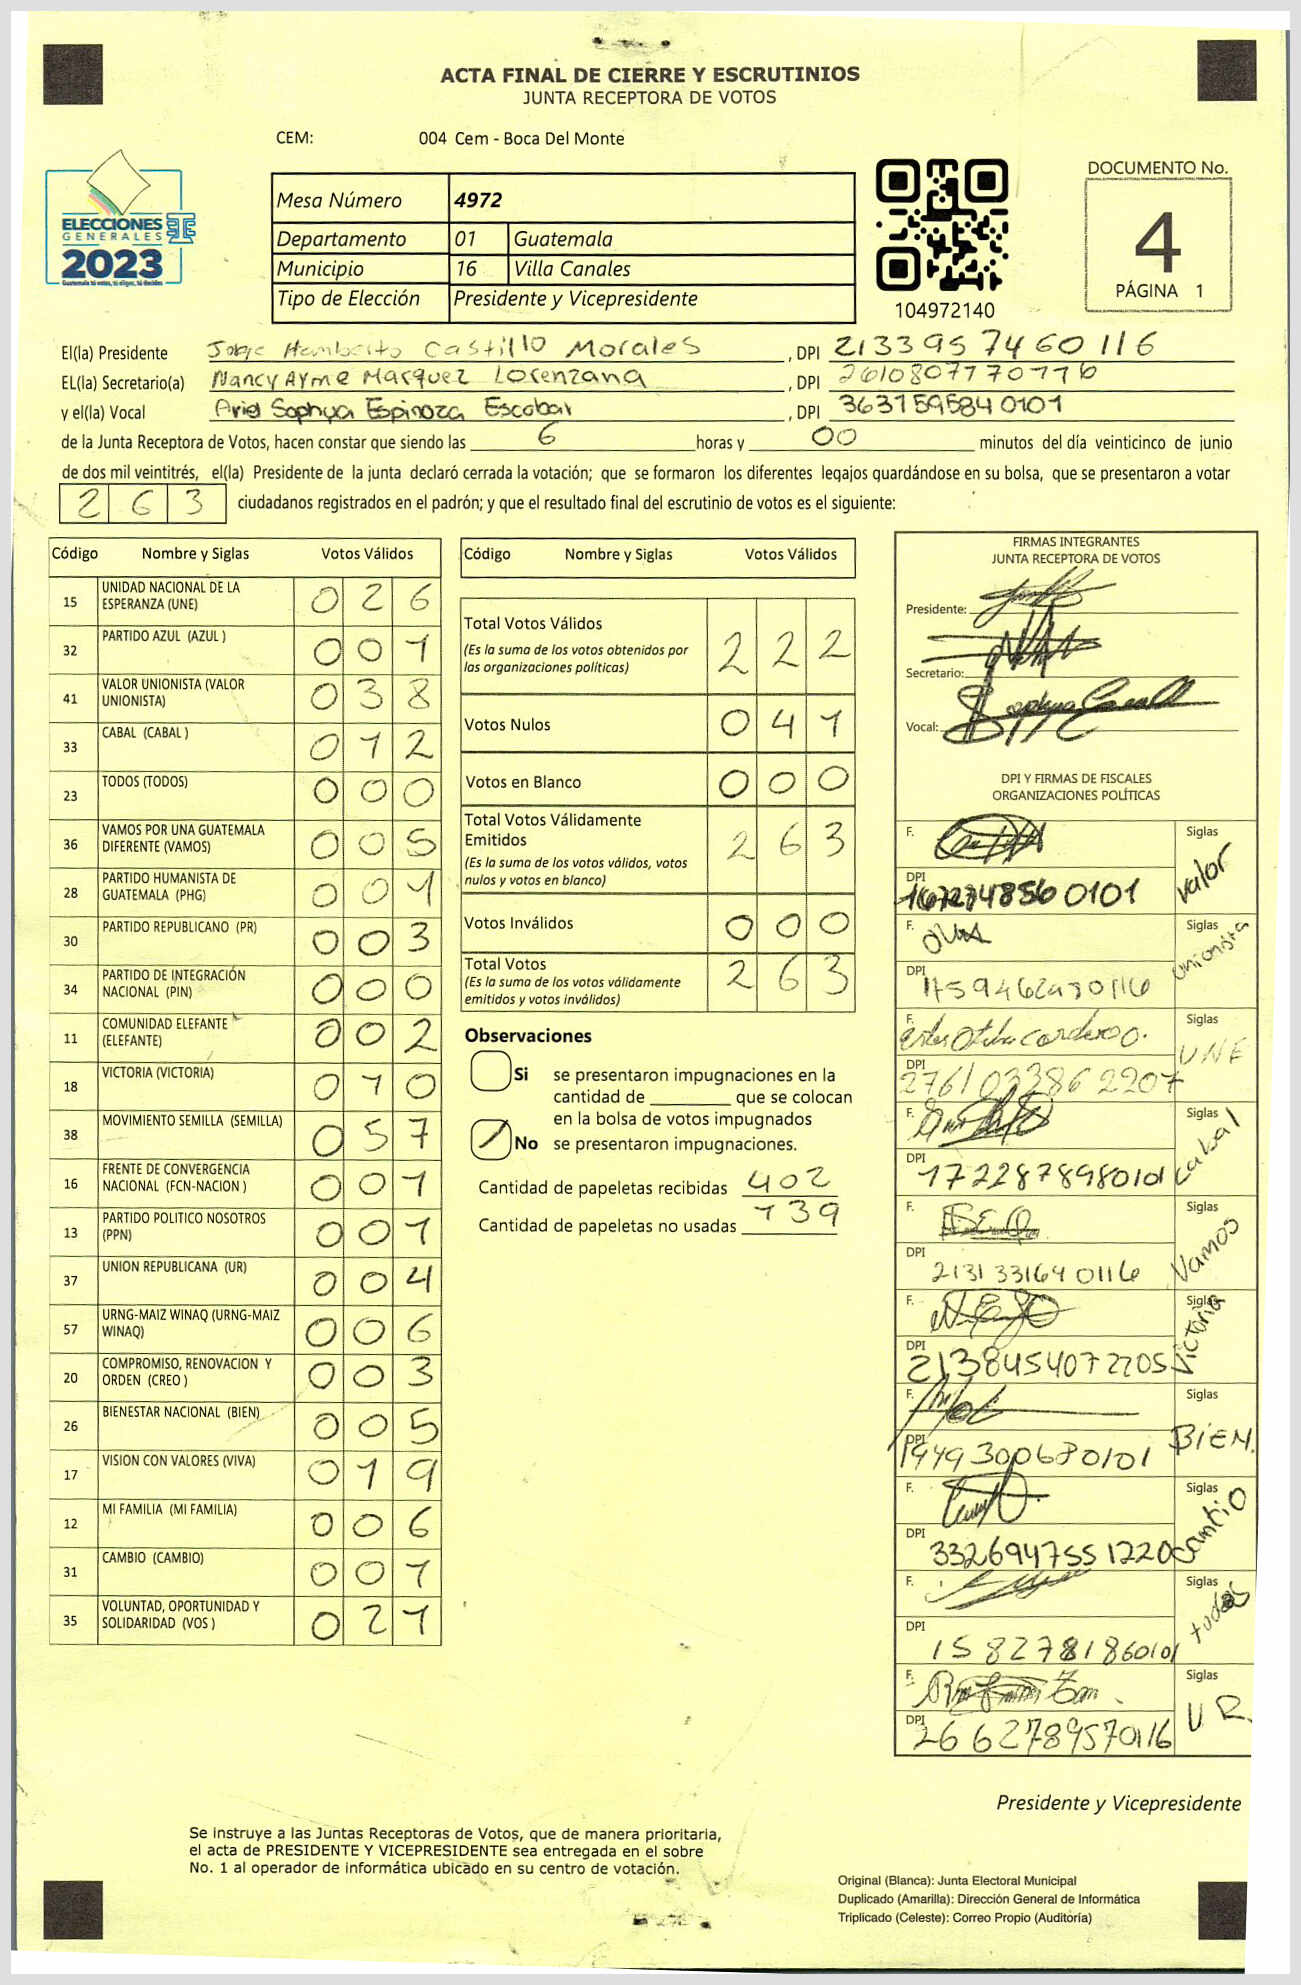 ACTA FINAL DE CIERRE Y ESCRUTINIOS
JUNTA RECEPTORA DE VOTOS
CEM: 004 Cem - Boca Del Monte
ELECCIONES
GENERALES
2023
Guatemala tú votas, tú eliges, tú decides
Mesa Número 4972
Departamento 01 Guatemala
Municipio 16 Villa Canales
Tipo de Elección Presidente y Vicepresidente
104972140
DOCUMENTO No.
4
PÁGINA 1
El(la) Presidente Jorge Humberto Castillo Morales , DPI 2133957460116
EL(la) Secretario(a) Nancy Ayme Marquez Lorenzana , DPI 2610807770116
y el(la) Vocal Ariel Sophya Espinoza Escobar , DPI 3637595840101
de la Junta Receptora de Votos, hacen constar que siendo las 6 horas y 00 minutos del día veinticinco de junio
de dos mil veintitrés, el(la) Presidente de la junta declaró cerrada la votación; que se formaron los diferentes legajos guardándose en su bolsa, que se presentaron a votar
263 ciudadanos registrados en el padrón; y que el resultado final del escrutinio de votos es el siguiente:
Código Nombre y Siglas Votos Válidos
15 UNIDAD NACIONAL DE LA ESPERANZA (UNE) 026
32 PARTIDO AZUL (AZUL ) 001
41 VALOR UNIONISTA (VALOR UNIONISTA) 038
33 CABAL (CABAL ) 012
23 TODOS (TODOS) 000
36 VAMOS POR UNA GUATEMALA DIFERENTE (VAMOS) 005
28 PARTIDO HUMANISTA DE GUATEMALA (PHG) 001
30 PARTIDO REPUBLICANO (PR) 003
34 PARTIDO DE INTEGRACIÓN NACIONAL (PIN) 000
11 COMUNIDAD ELEFANTE (ELEFANTE) 002
18 VICTORIA (VICTORIA) 010
38 MOVIMIENTO SEMILLA (SEMILLA) 057
16 FRENTE DE CONVERGENCIA NACIONAL (FCN-NACION ) 001
13 PARTIDO POLITICO NOSOTROS (PPN) 001
37 UNION REPUBLICANA (UR) 004
57 URNG-MAIZ WINAQ (URNG-MAIZ WINAQ) 006
20 COMPROMISO, RENOVACION Y ORDEN (CREO ) 003
26 BIENESTAR NACIONAL (BIEN) 005
17 VISION CON VALORES (VIVA) 019
12 MI FAMILIA (MI FAMILIA) 006
31 CAMBIO (CAMBIO) 001
35 VOLUNTAD, OPORTUNIDAD Y SOLIDARIDAD (VOS ) 021
Código Nombre y Siglas Votos Válidos
Total Votos Válidos 222
(Es la suma de los votos obtenidos por
las organizaciones políticas)
Votos Nulos 041
Votos en Blanco 000
Total Votos Válidamente
Emitidos 263
(Es la suma de los votos válidos, votos
nulos y votos en blanco)
Votos Inválidos 000
Total Votos 263
(Es la suma de los votos válidamente
emitidos y votos inválidos)
Observaciones
Si se presentaron impugnaciones en la
cantidad de ________ que se colocan
en la bolsa de votos impugnados
No se presentaron impugnaciones.
Cantidad de papeletas recibidas 402
Cantidad de papeletas no usadas 139
FIRMAS INTEGRANTES
JUNTA RECEPTORA DE VOTOS
Presidente:
Secretario:
Vocal:
DPI Y FIRMAS DE FISCALES
ORGANIZACIONES POLÍTICAS
F. Siglas valor
DPI
F. Siglas unionista
DPI
F. Siglas UNE
DPI 2761033862207
F. Siglas cabal
DPI 1722878980101
F. Siglas Vamos
DPI 2131331640116
F. Siglas Victoria
DPI 2138454072205
F. Siglas BIEN.
DPI 1949300680101
F. Siglas Cambio
DPI 3326947551220
F. Siglas todos
DPI 1582781860101
F. Siglas UR.
DPI 2662789570116
Presidente y Vicepresidente
Se instruye a las Juntas Receptoras de Votos, que de manera prioritaria,
el acta de PRESIDENTE Y VICEPRESIDENTE sea entregada en el sobre
No. 1 al operador de informática ubicado en su centro de votación.
Original (Blanca): Junta Electoral Municipal
Duplicado (Amarilla): Dirección General de Informática
Triplicado (Celeste): Correo Propio (Auditoría)